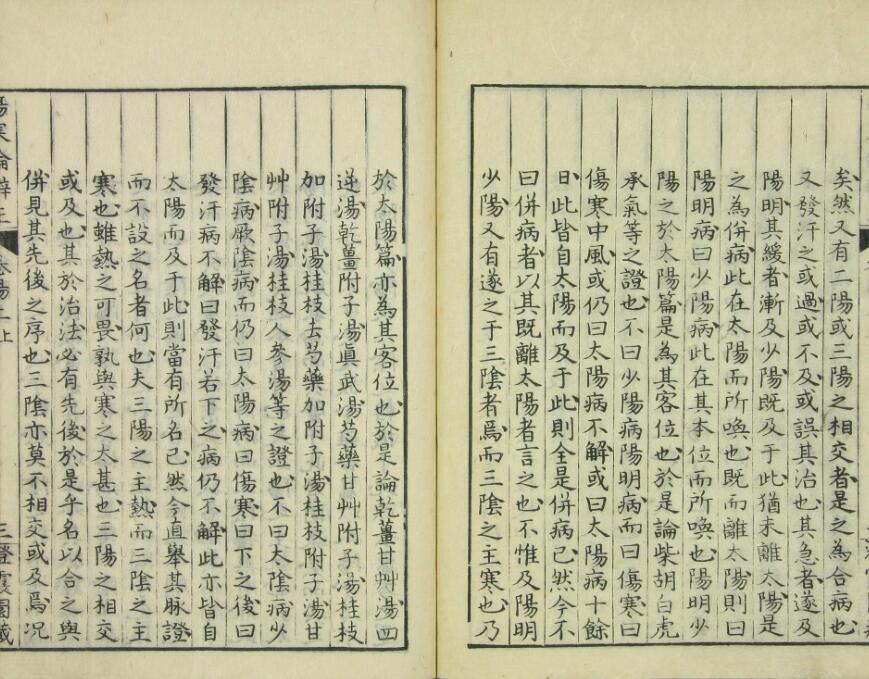 矣然又有二陽或三陽之相交者是之為合病也
又發汗之或過或不及或誤其治也其急者遂及
陽明其緩者漸及少陽既及于此猶未離太陽是
之為併病此在太陽而所喚也既而離太陽則曰
陽明病曰少陽病此在其本位而所喚也陽明少
陽之於太陽篇是為其客位也於是論柴胡白虎
承氣等之證也不曰少陽病陽明病而曰傷寒曰
傷寒中風或仍曰太陽病不解或曰太陽病十餘
日此皆自太陽而及于此則全是併病已然今不
曰併病者以其既離太陽者言之也不惟及陽明
少陽又有遂之于三陰者焉而三陰之主寒也乃
於太陽篇亦為其客位也於是論乾薑甘艸湯四
逆湯乾薑附子湯眞武湯芍藥甘艸附子湯桂枝
加附子湯桂枝去芍藥加附子湯桂枝附子湯甘
艸附子湯桂枝人參湯等之證也不曰太陰病少
陰病厥陰病而仍曰太陽病曰傷寒曰下之後曰
發汗病不解曰發汗若下之病仍不解此亦皆自
太陽而及于此則當有所名已然今直舉其脉證
而不設之名者何也夫三陽之主熱而三陰之主
寒也雖熱之可畏孰與寒之太甚也三陽之相交
或及也其於治法必有先後於是乎名以合之與
併見其先後之序也三陰亦莫不相交或及焉况
傷寒論辨正 卷陽二上 三 證霞園藏